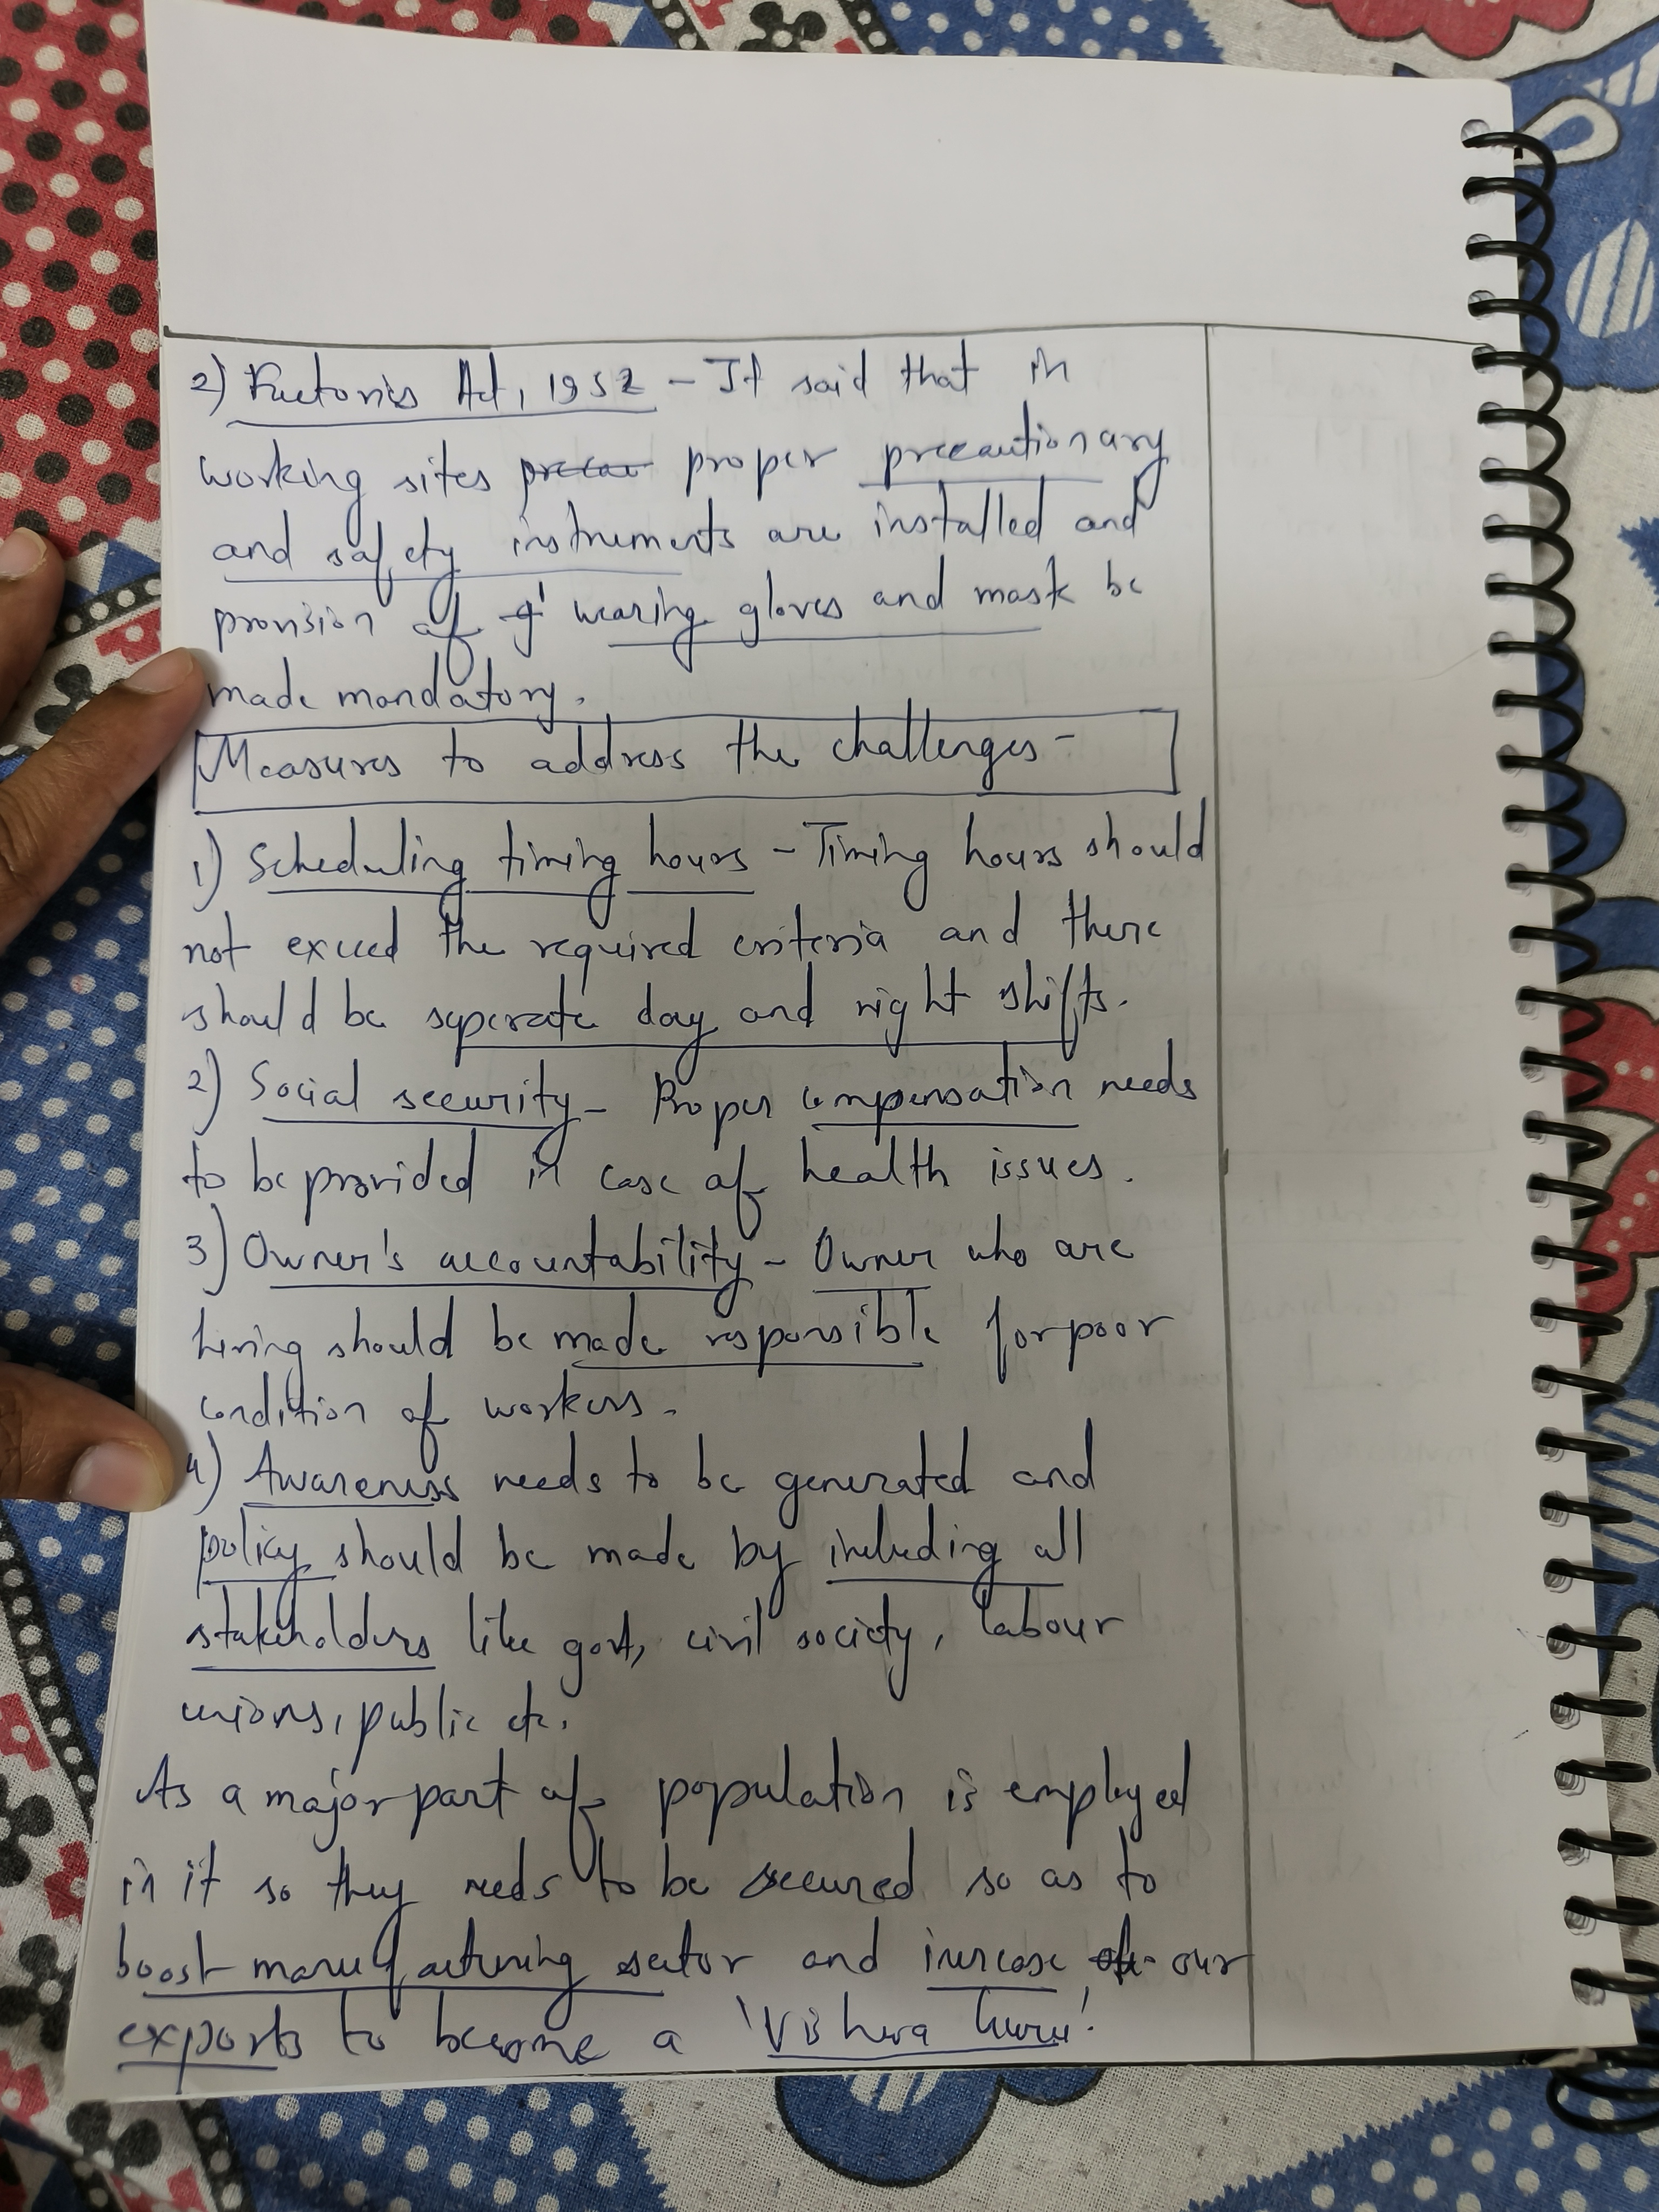 2) Factories Act, 1952 - It said that in
working sites precau proper precautionary
and safety instruments are installed and
provision of g wearing gloves and mask be
made mandatory.
Measures to address the challenges -
1) Scheduling timing hours - Timing hours should
not exceed the required criteria and there
should be seperate day and night shifts.
2) Social security - Proper compensation needs
to be provided in case of health issues.
3) Owner's accountability - Owner who are
hiring should be made responsible for poor
condition of workers.
4) Awareness needs to be generated and
policy should be made by including all
stakeholders like govt, civil society, labour
unions, public etc.
As a major part of population is employed
in it so they needs to be secured so as to
boost manufacturing sector and increase our
exports to become a 'Vishwa Guru'.